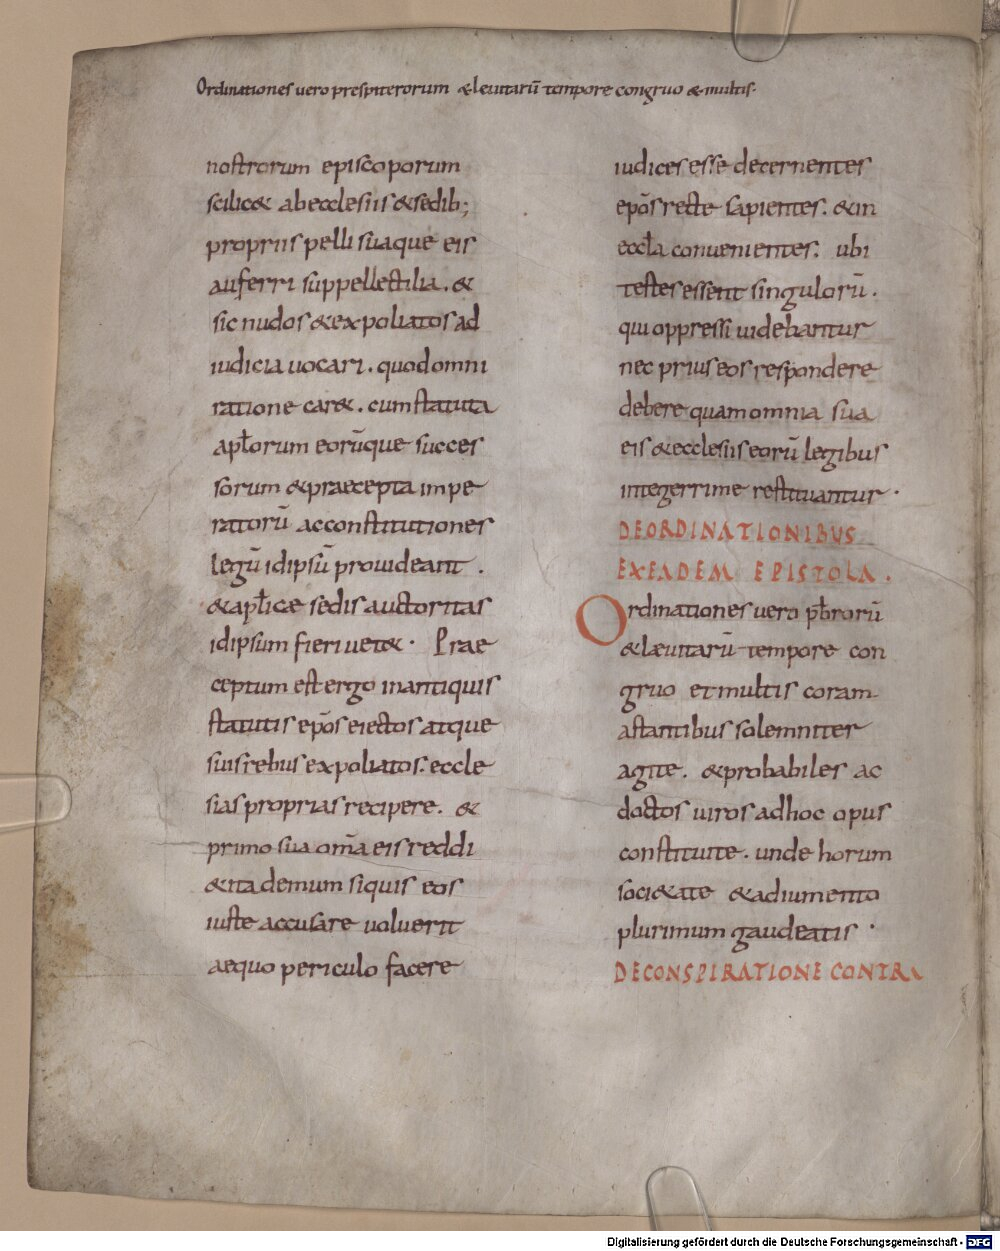 Ordinationes uero prespiterorum & leuitarū tempore congruo & multis·
nostrorum episcoporum
scilic& ab ecclesiis & sedib;
propriis pelli suaque eis
auferri suppellectilia. &
sic nudos & expoliatos ad
iudicia uocari. quod omni
ratione car&. cum statuta
apłorum eorūque succes
sorum & praecepta impe
ratorū ac constitutiones
legū id ipsū prouideant.
& apłicæ sedis auctoritas
id ipsum fieri uet&· Prae
ceptum est ergo in antiquis
statutis ep̄os eiectos atque
suis rebus expoliatos. eccle
sias proprias recipere. &
primo sua om̄a eis reddi
& ita demum si quis eos
iuste accusare uoluerit
aequo periculo facere
iudices esse decernentes
ep̄os recte sapientes. & in
eccła conuenientes. ubi
testes essent singulorū.
qui oppressi uidebantur
nec prius eos respondere
debere quam omnia sua
eis & ecclesiis eorū legibus
integerrime restituantur·
DE ORDINATIONIBUS
EX EADEM EPISTOLA.
Ordinationes uero pb̄rorū
& læuitarū tempore con
gruo et multis coram
astantibus solemniter
agite. & probabiles ac
doctos uiros ad hoc opus
constituite. unde horum
soci&ate & adiumento
plurimum gaudeatis·
DE CONSPIRATIONE CONTRA
Digitalisierung gefördert durch die Deutsche Forschungsgemeinschaft - DFG